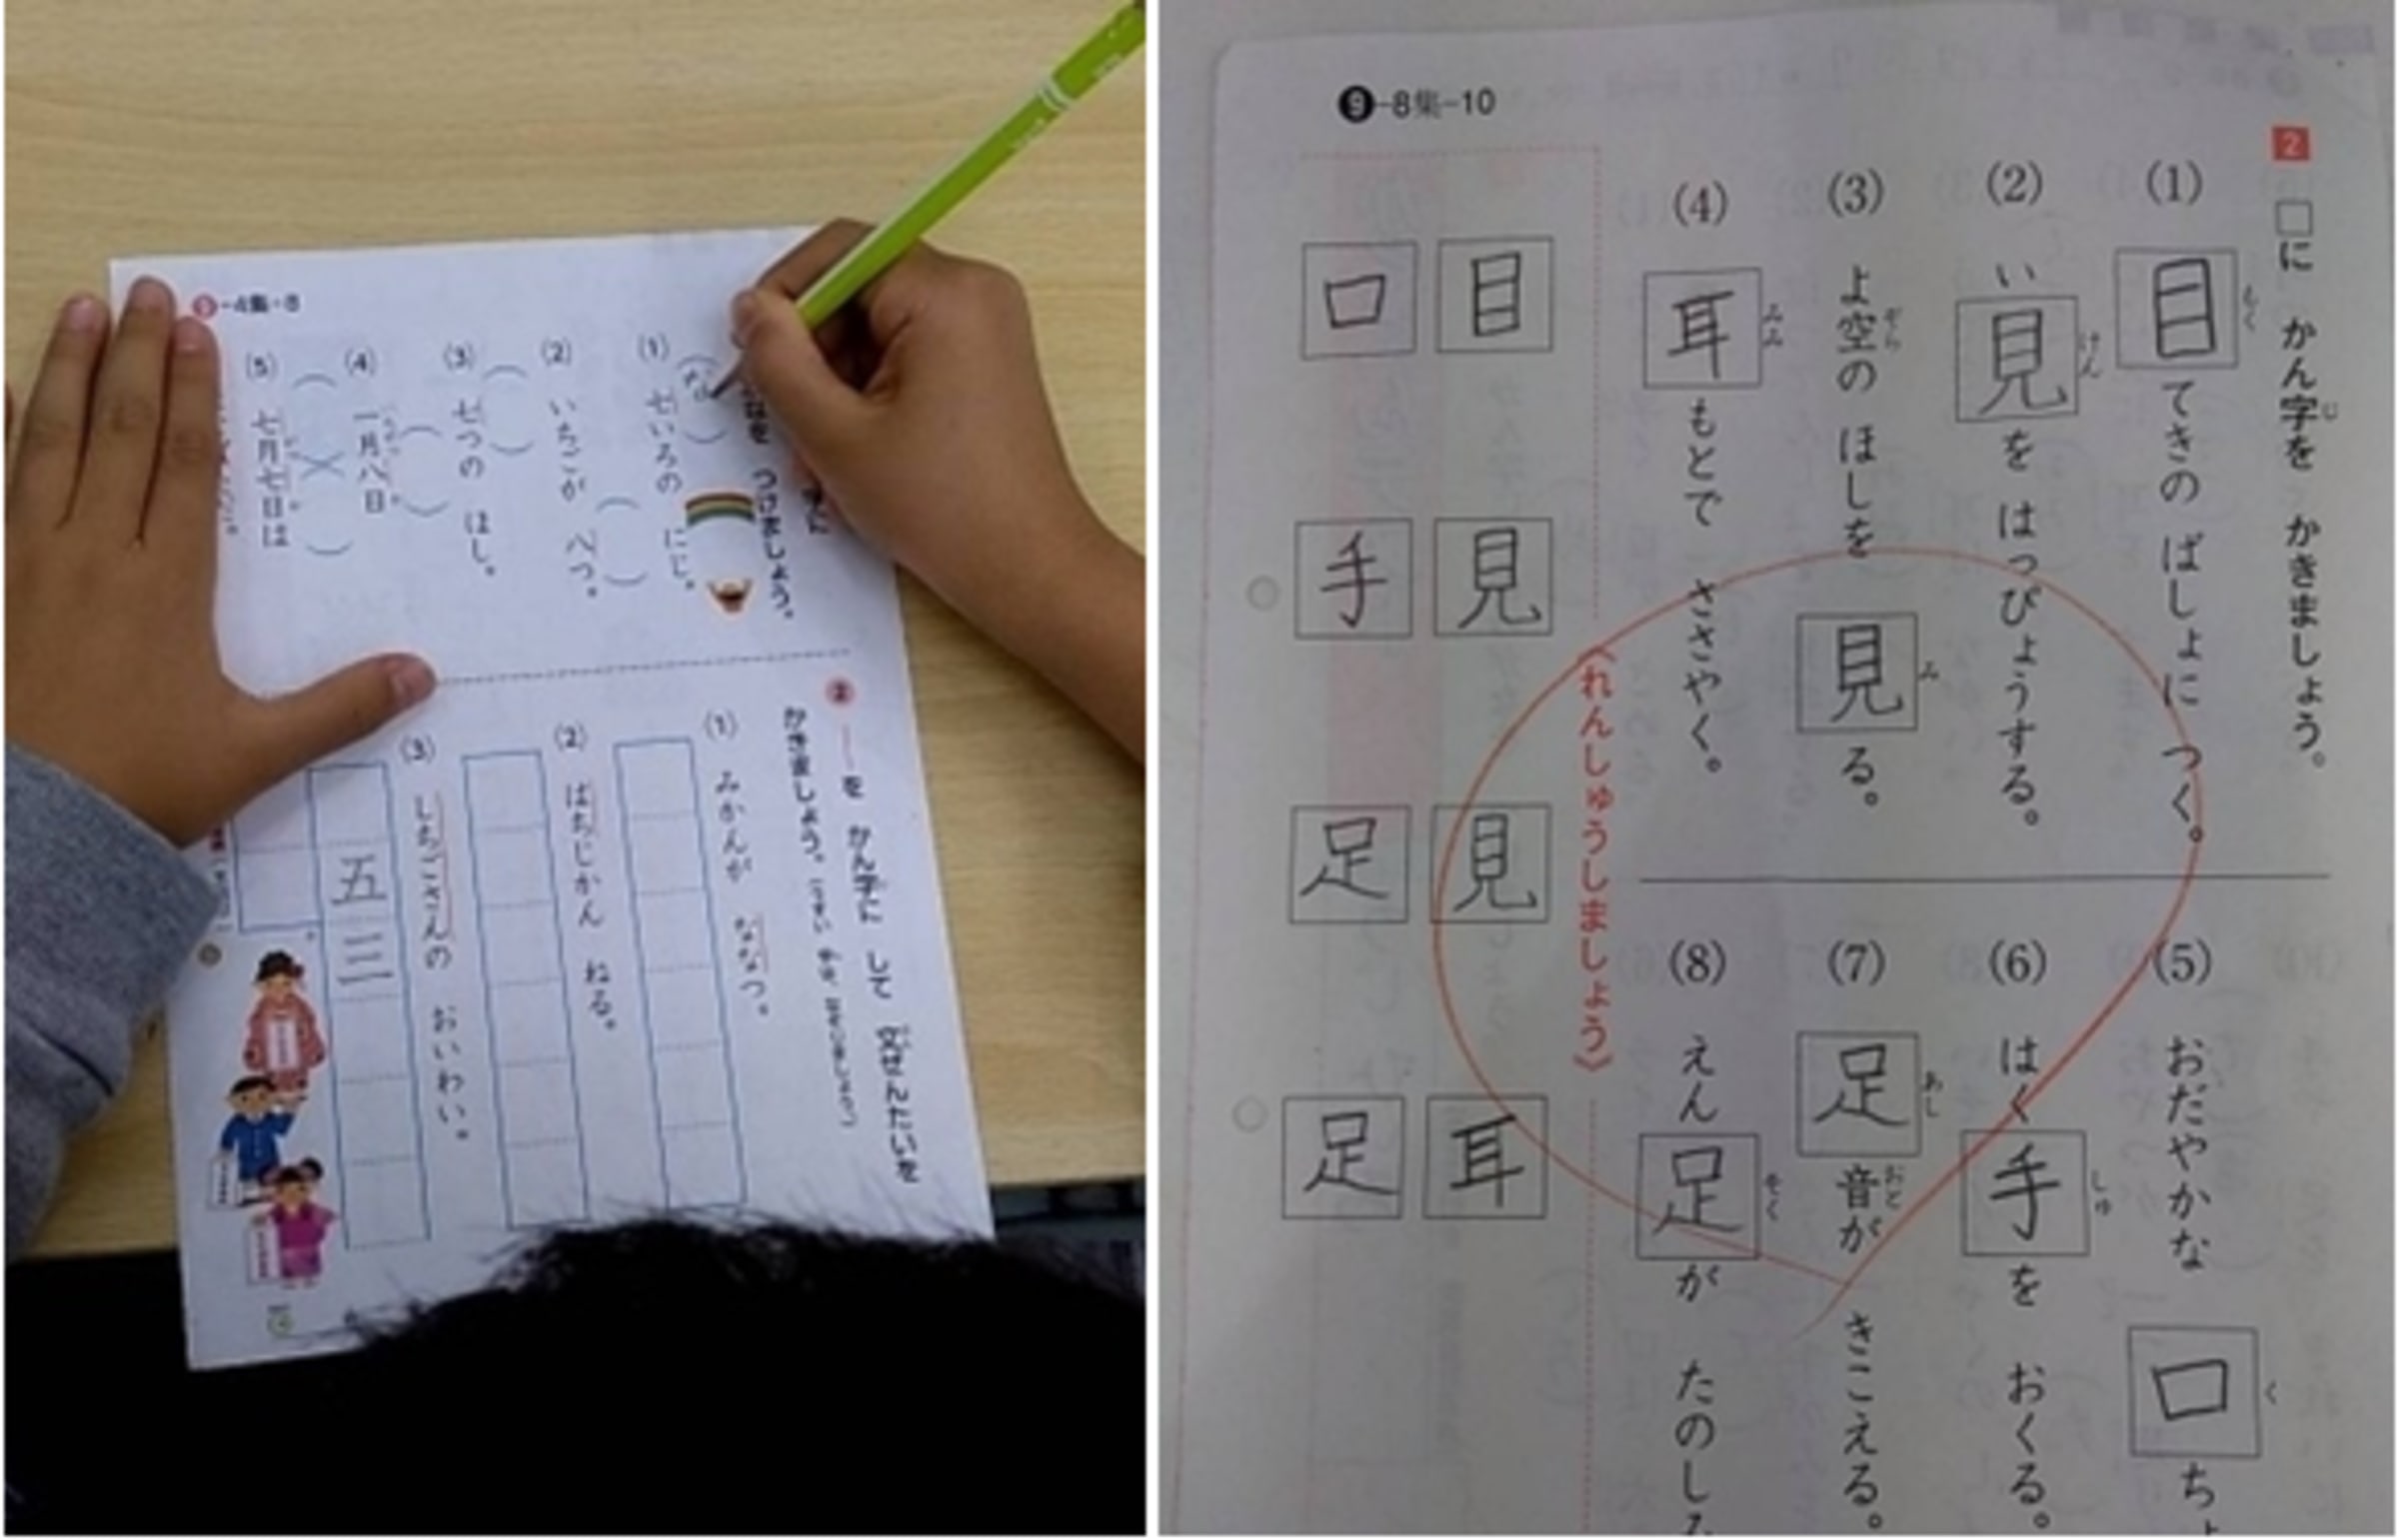 ❺-4集-8
つけましょう。
(1) 七いろの にじ。
(2) いちごが 八つ。
(3) 七つの ほし。
(4) 一月八日
(5) 七月七日は
2 ――を かん字に して 文ぜんたいを
かきましょう。
(1) みかんが ななつ。
(2) はちじかん ねる。
(3) しちごさんの おいわい。
五三
❾-8集-10
2 □に かん字を かきましょう。
(1) 目てきの ばしょに つく。
もく
(2) い見を はっぴょうする。
けん
(3) よ空の ほしを 見る。
ぞら み
(4) 耳もとで ささやく。
みみ
(5) おだやかな 口ち
く
(6) はく手を おくる。
しゅ
(7) 足音が きこえる。
あし おと
(8) えん足が たのし
そく
〈れんしゅうしましょう〉
目 見 見 耳
口 手 足 足